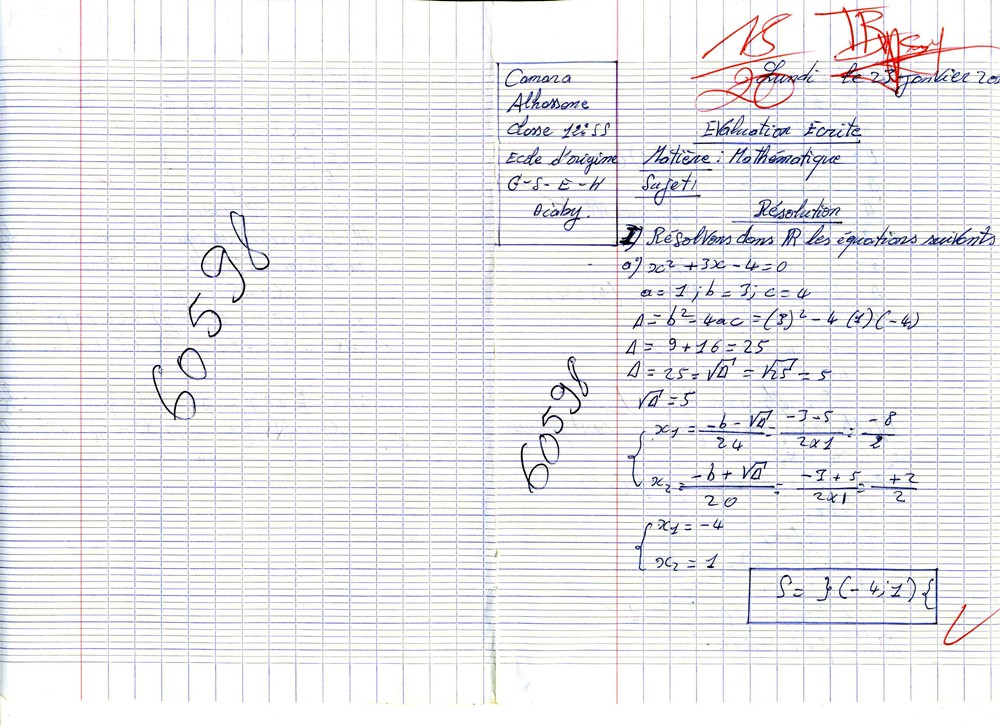 60598
60598
Camara
Alhassane
Classe 12è SS
Ecole d'origine
G-S-E-H
Diaby.
18/20 TB
Lundi le 23 janvier
Evaluation Ecrite
Matière : Mathématique
Sujet 1
Résolution
I) Résolvons dans IR les équations suivants
a) x² + 3x - 4 = 0
a = 1 ; b = 3 ; c = 4
Δ = b² - 4ac = (3)² - 4 (1) (-4)
Δ = 9 + 16 = 25
Δ = 25 = √Δ = √25 = 5
√Δ = 5
x1 = (-b - √Δ)/24 = (-3 - 5)/(2x1) = -8/2
x2 = (-b + √Δ)/20 = (-3 + 5)/(2x1) = +2/2
x1 = -4
x2 = 1
S = }(-4;1){